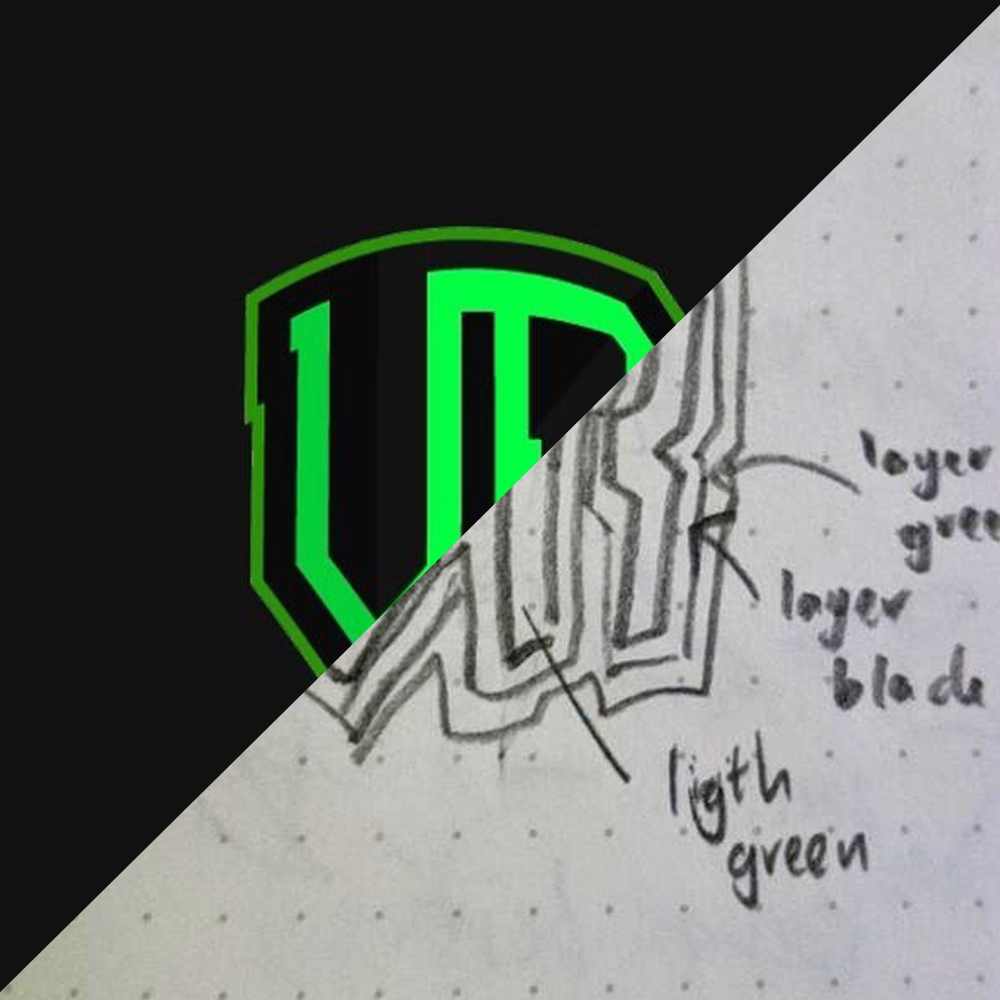 layer
gree
layer
blade
ligth
green